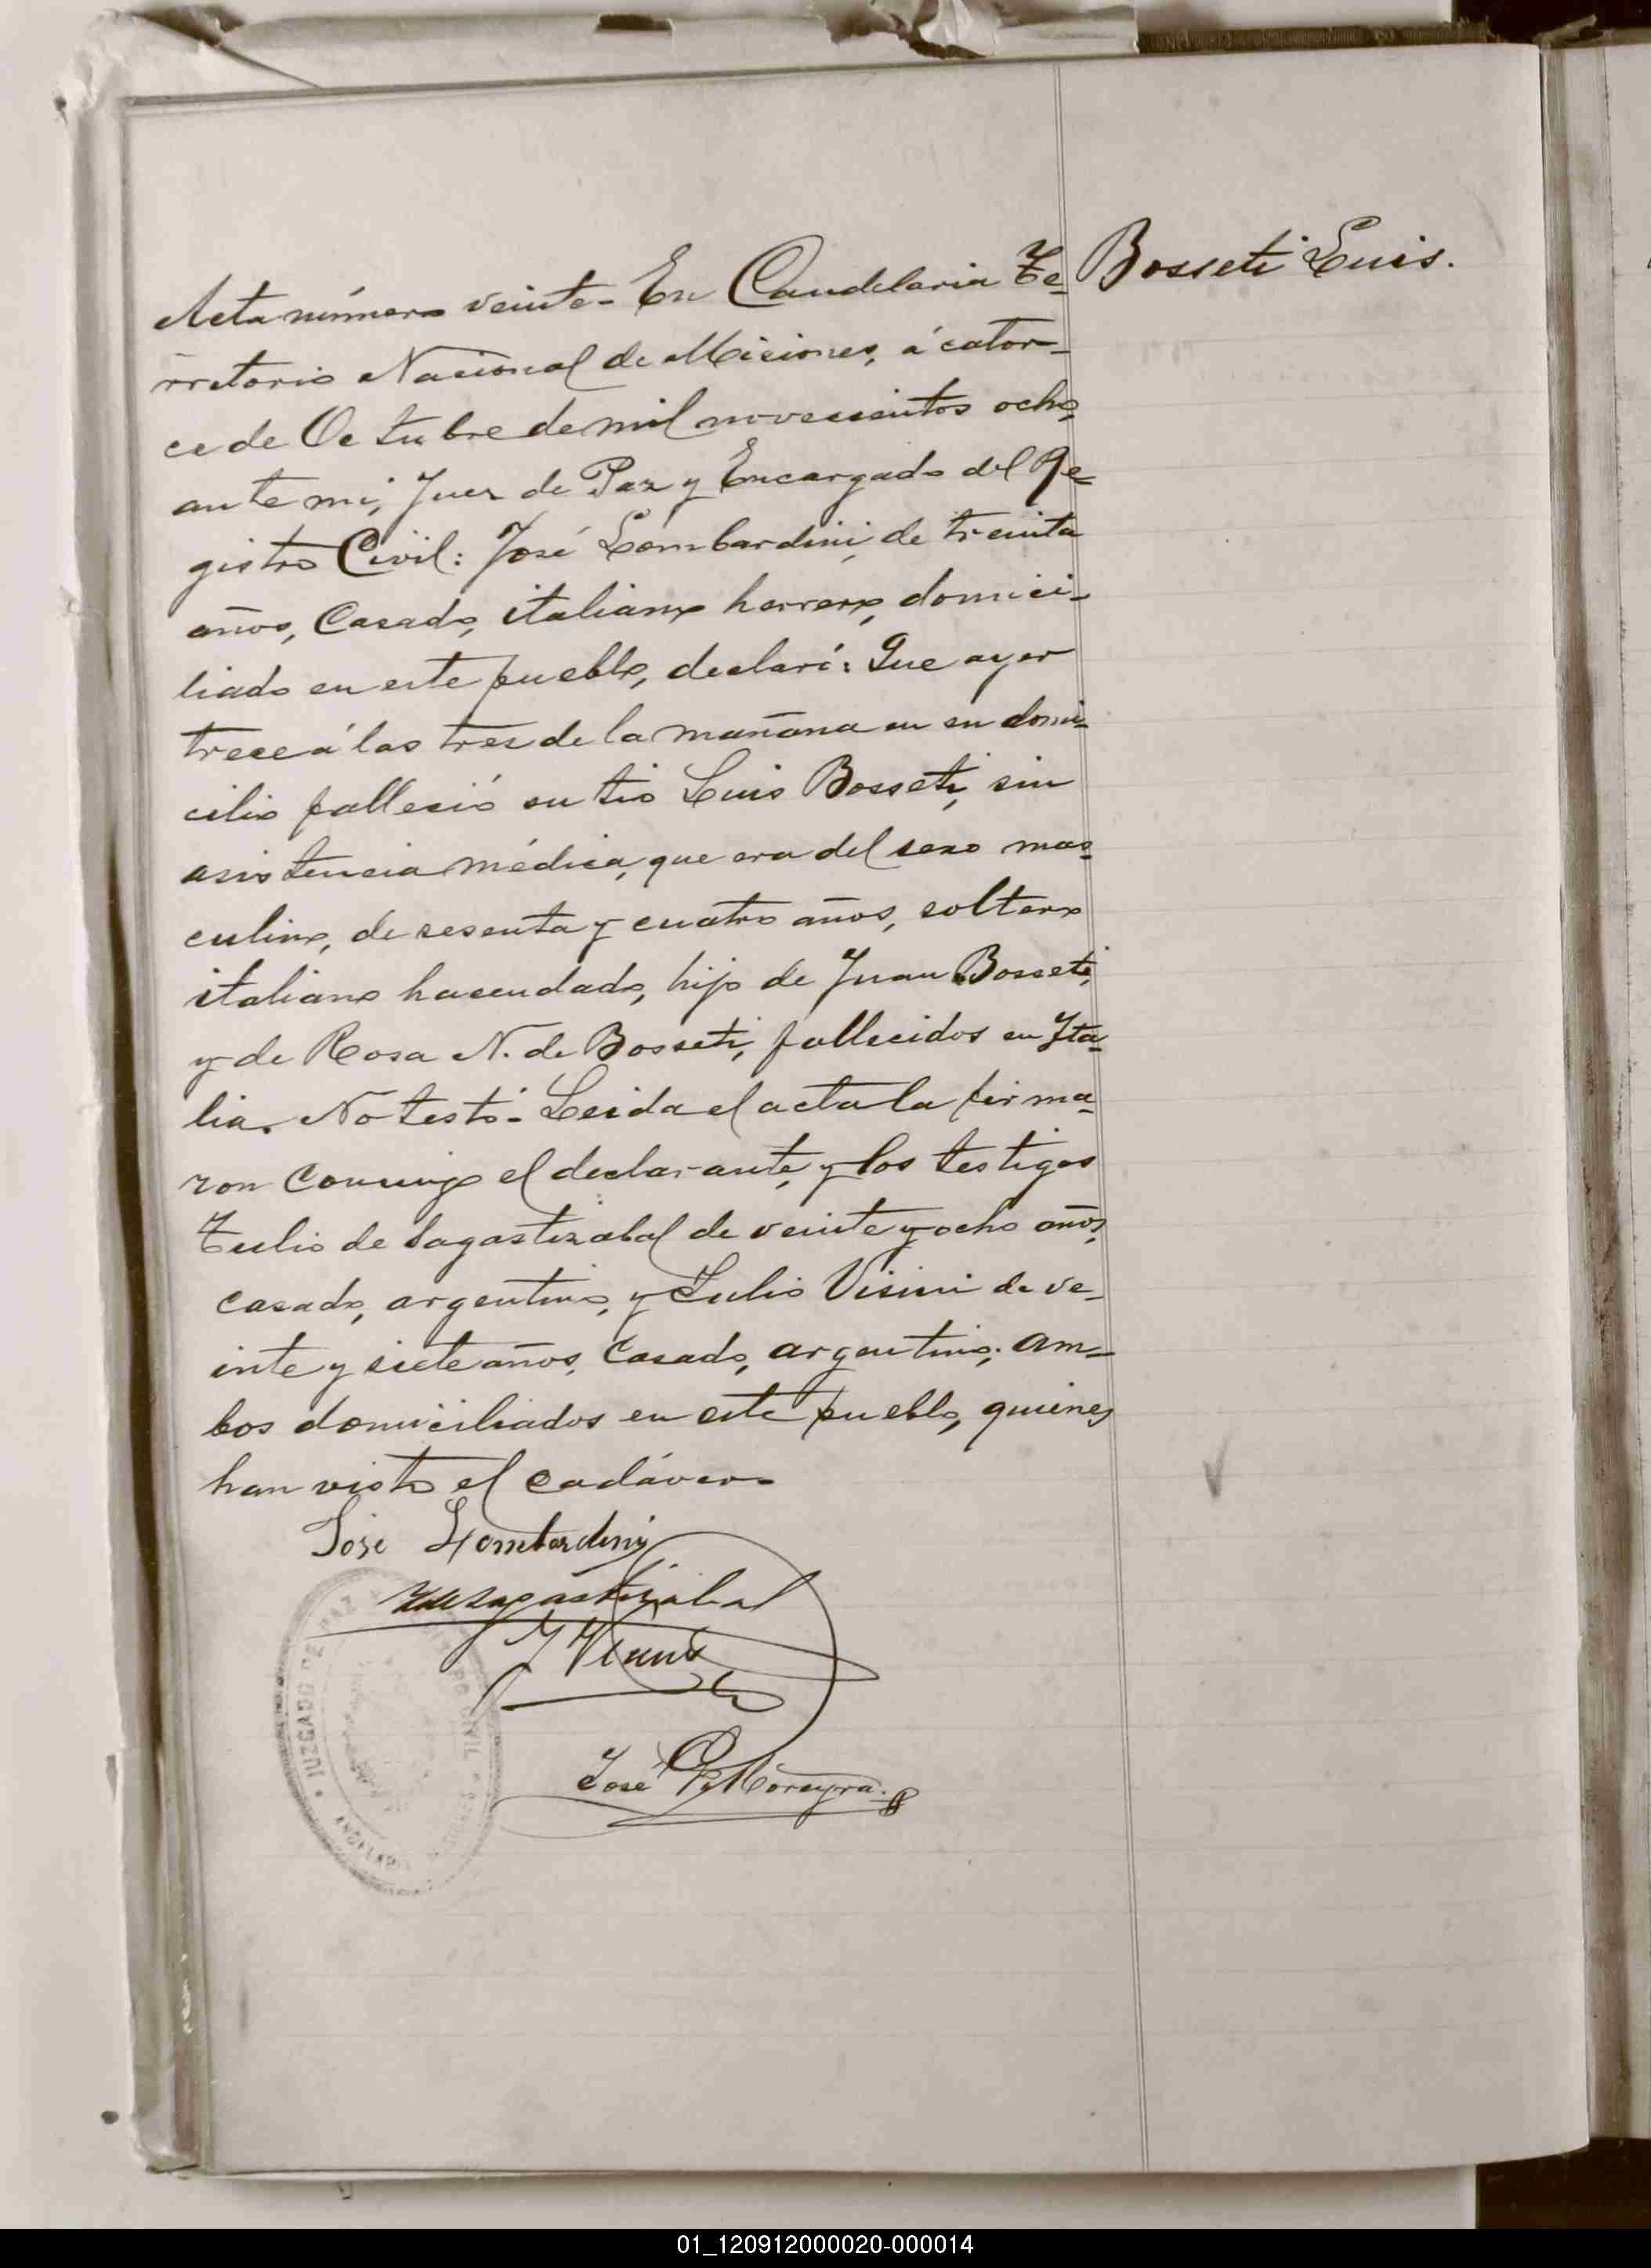 Bosseti Luis.
Acta número veinte - En Candelaria Te-
rritorio Nacional de Misiones, á cator-
ce de Octubre de mil novescientos ocho,
ante mi, Juez de Paz y Encargado del Re-
gistro Civil: José Lombardini, de treinta
años, Casado, italiano herrero, domici-
liado en este pueblo, declaró: Que ayer
trece á las tres de la mañana en su domi-
cilio fallesió su tio Luis Bosseti, sin
asistencia médica, que era del sexo mas-
culino, de sesenta y cuatro años, soltero
italiano hacendado, hijo de Juan Bosseti,
y de Rosa N. de Bosseti, fallecidos en Ita-
lia. No testó - Leida el acta la firma-
ron conmigo el declarante, y los testigos
Tulio de Sagastizabal de veinte y ocho años,
casado, argentino, y Julio Visini de ve-
inte y siete años, Casado, argentino; am-
bos domiciliados en este pueblo, quienes
han visto el cadáver.
José Lombardini
Sagastizabal
José Moreyra.
JUZGADO DE PAZ
CIVIL
01_120912000020-000014